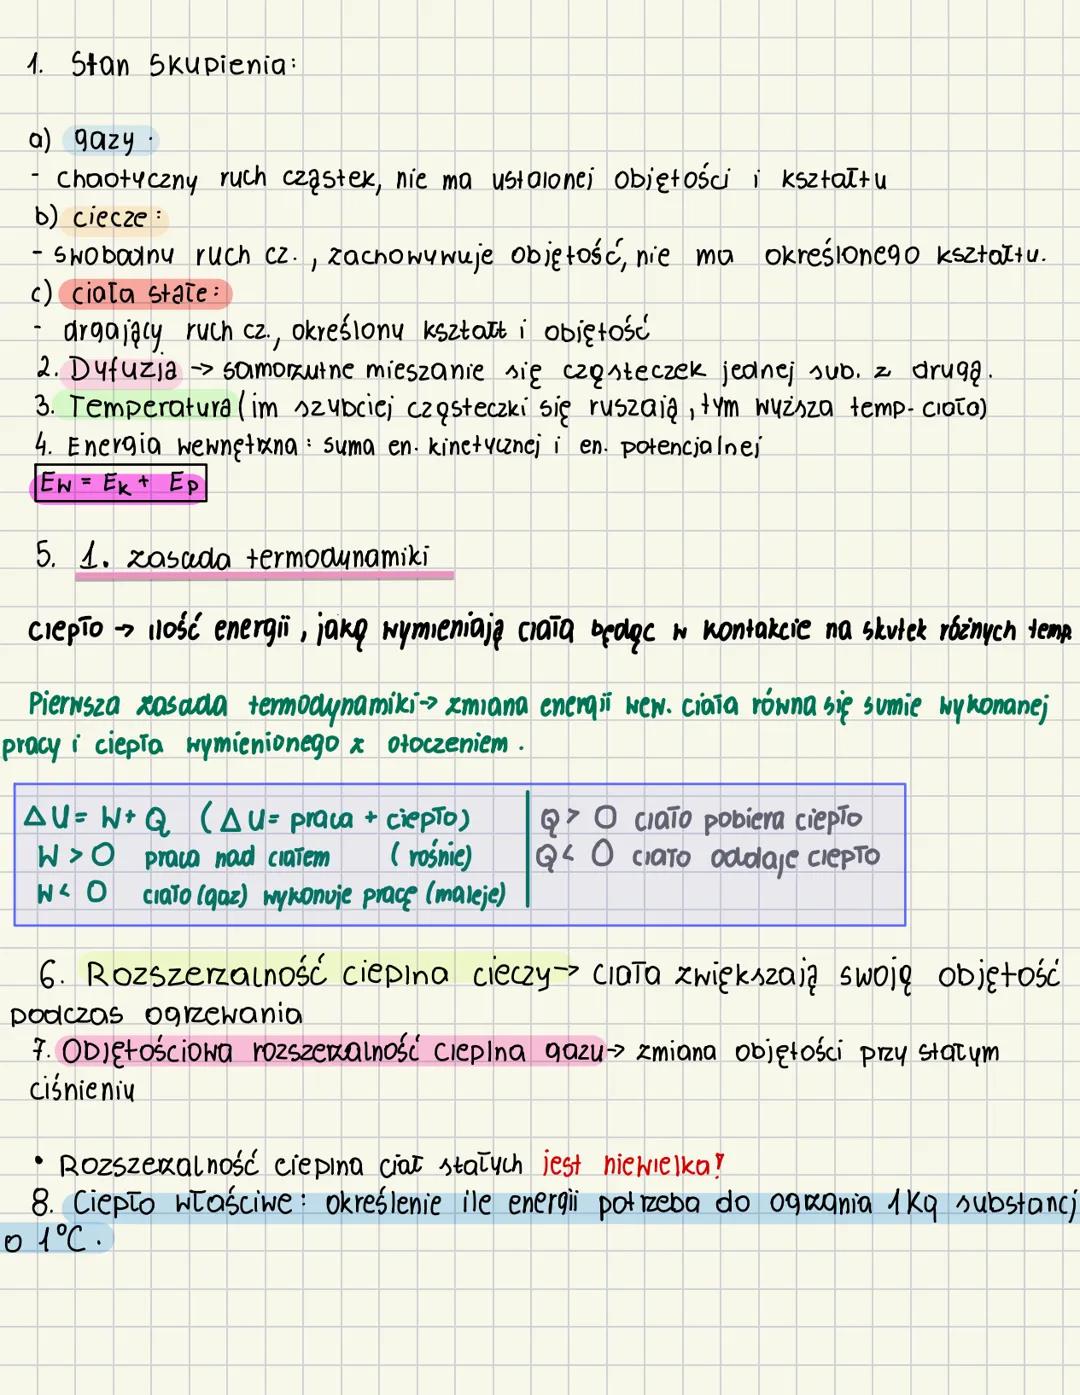 1. Stan Skupienia:
a) gazy.
- chaotyczny ruch cząstek, nie ma ustalonej objętości i kształtu
b) ciecze:
- swobodny ruch cz., zachowywuje objętość, nie ma określonego kształtu.
c) ciała stałe:
- drgający ruch cz., określony kształt i objętość
2. Dyfuzja -> samorzutne mieszanie się cząsteczek jednej sub. z drugą.
3. Temperatura (im szybciej cząsteczki się ruszają, tym wyższa temp. ciała)
4. Energia wewnętrzna: suma en. kinetycznej i en. potencjalnej
Ew = Ek + Ep
5. 1. zasada termodynamiki
ciepło -> ilość energii, jaką wymieniają ciała będąc w kontakcie na skutek różnych temp.
Pierwsza zasada termodynamiki -> zmiana energii wew. ciała równa się sumie wykonanej
pracy i ciepła wymienionego z otoczeniem.
ΔU = W + Q (ΔU = praca + ciepło)
W > 0 praca nad ciałem (rośnie)
W < 0 ciało (gaz) wykonuje pracę (maleje)
Q > 0 ciało pobiera ciepło
Q < 0 ciało oddaje ciepło
6. Rozszerzalność cieplna cieczy -> ciała zwiększają swoją objętość
podczas ogrzewania
7. Objętościowa rozszerzalność cieplna gazu -> zmiana objętości przy stałym
ciśnieniu
• Rozszerzalność cieplna ciał stałych jest niewielka!
8. Ciepło właściwe: określenie ile energii potrzeba do ogrzania 1kg substancj
o 1°C.